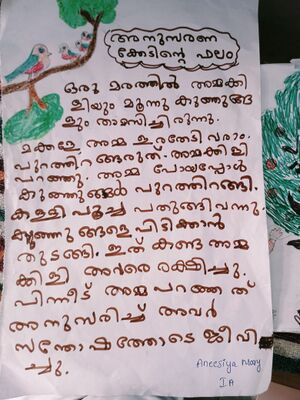 അനുസരണ
ക്കേടിന്റെ ഫലം
ഒരു മരത്തിൽ അമ്മക്കി
ളിയും മൂന്നു കുഞ്ഞുങ്ങ
ളും താമസിച്ചിരുന്നു.
മക്കളേ, അമ്മ ഇരതേടി വരാം.
പുറത്തിറങ്ങരുത്. അമ്മക്കിളി
പറഞ്ഞു. അമ്മ പോയപ്പോൾ
കുഞ്ഞുങ്ങൾ പുറത്തിറങ്ങി.
കള്ളി പൂച്ച പതുങ്ങിവന്നു.
കുഞ്ഞുങ്ങളെ പിടിക്കാൻ
തുടങ്ങി. ഇത് കണ്ട അമ്മ
ക്കിളി അവരെ രക്ഷിച്ചു.
പിന്നീട് അമ്മ പറഞ്ഞത്
അനുസരിച്ച് അവർ
സന്തോഷത്തോടെ ജീവി
ച്ചു.
Aneesiya Mary
I A